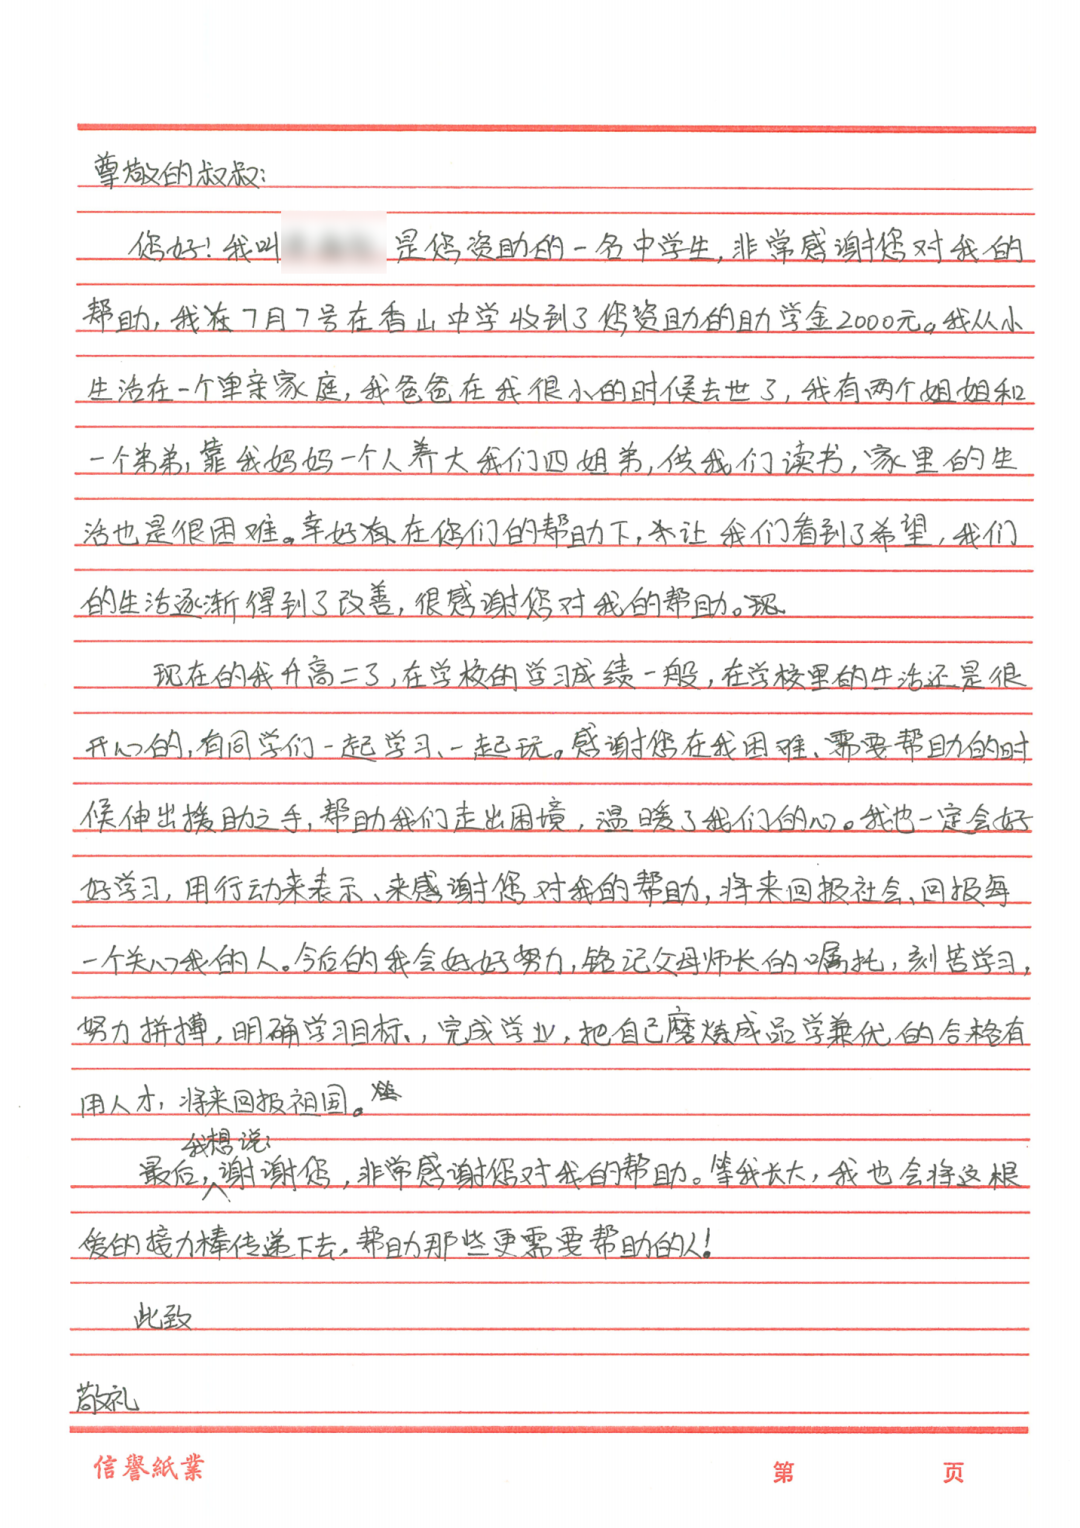 尊敬的叔叔:
您好!我叫 是您资助的一名中学生,非常感谢您对我的
帮助,我在7月7号在香山中学收到了您资助的助学金2000元。我从小
生活在一个单亲家庭,我爸爸在我很小的时候去世了,我有两个姐姐和
一个弟弟,靠我妈妈一个人养大我们四姐弟,供我们读书,家里的生
活也是很困难。幸好有在您们的帮助下,让我们看到了希望,我们
的生活逐渐得到了改善,很感谢您对我的帮助。现
现在的我升高二了,在学校的学习成绩一般,在学校里的生活还是很
开心的,有同学们一起学习、一起玩。感谢您在我困难、需要帮助的时
候伸出援助之手,帮助我们走出困境,温暖了我们的心。我也一定会好
好学习,用行动来表示、来感谢您对我的帮助,将来回报社会、回报每
一个关心我的人。今后的我会好好努力,铭记父母师长的嘱托,刻苦学习,
努力拼搏,明确学习目标、,完成学业,把自己磨炼成品学兼优的合格有
用人才,将来回报祖国。
我想说:
最后,谢谢您,非常感谢您对我的帮助。等我长大,我也会将这根
爱的接力棒传递下去,帮助那些更需要帮助的人!
此致
敬礼
信譽紙業
第 页